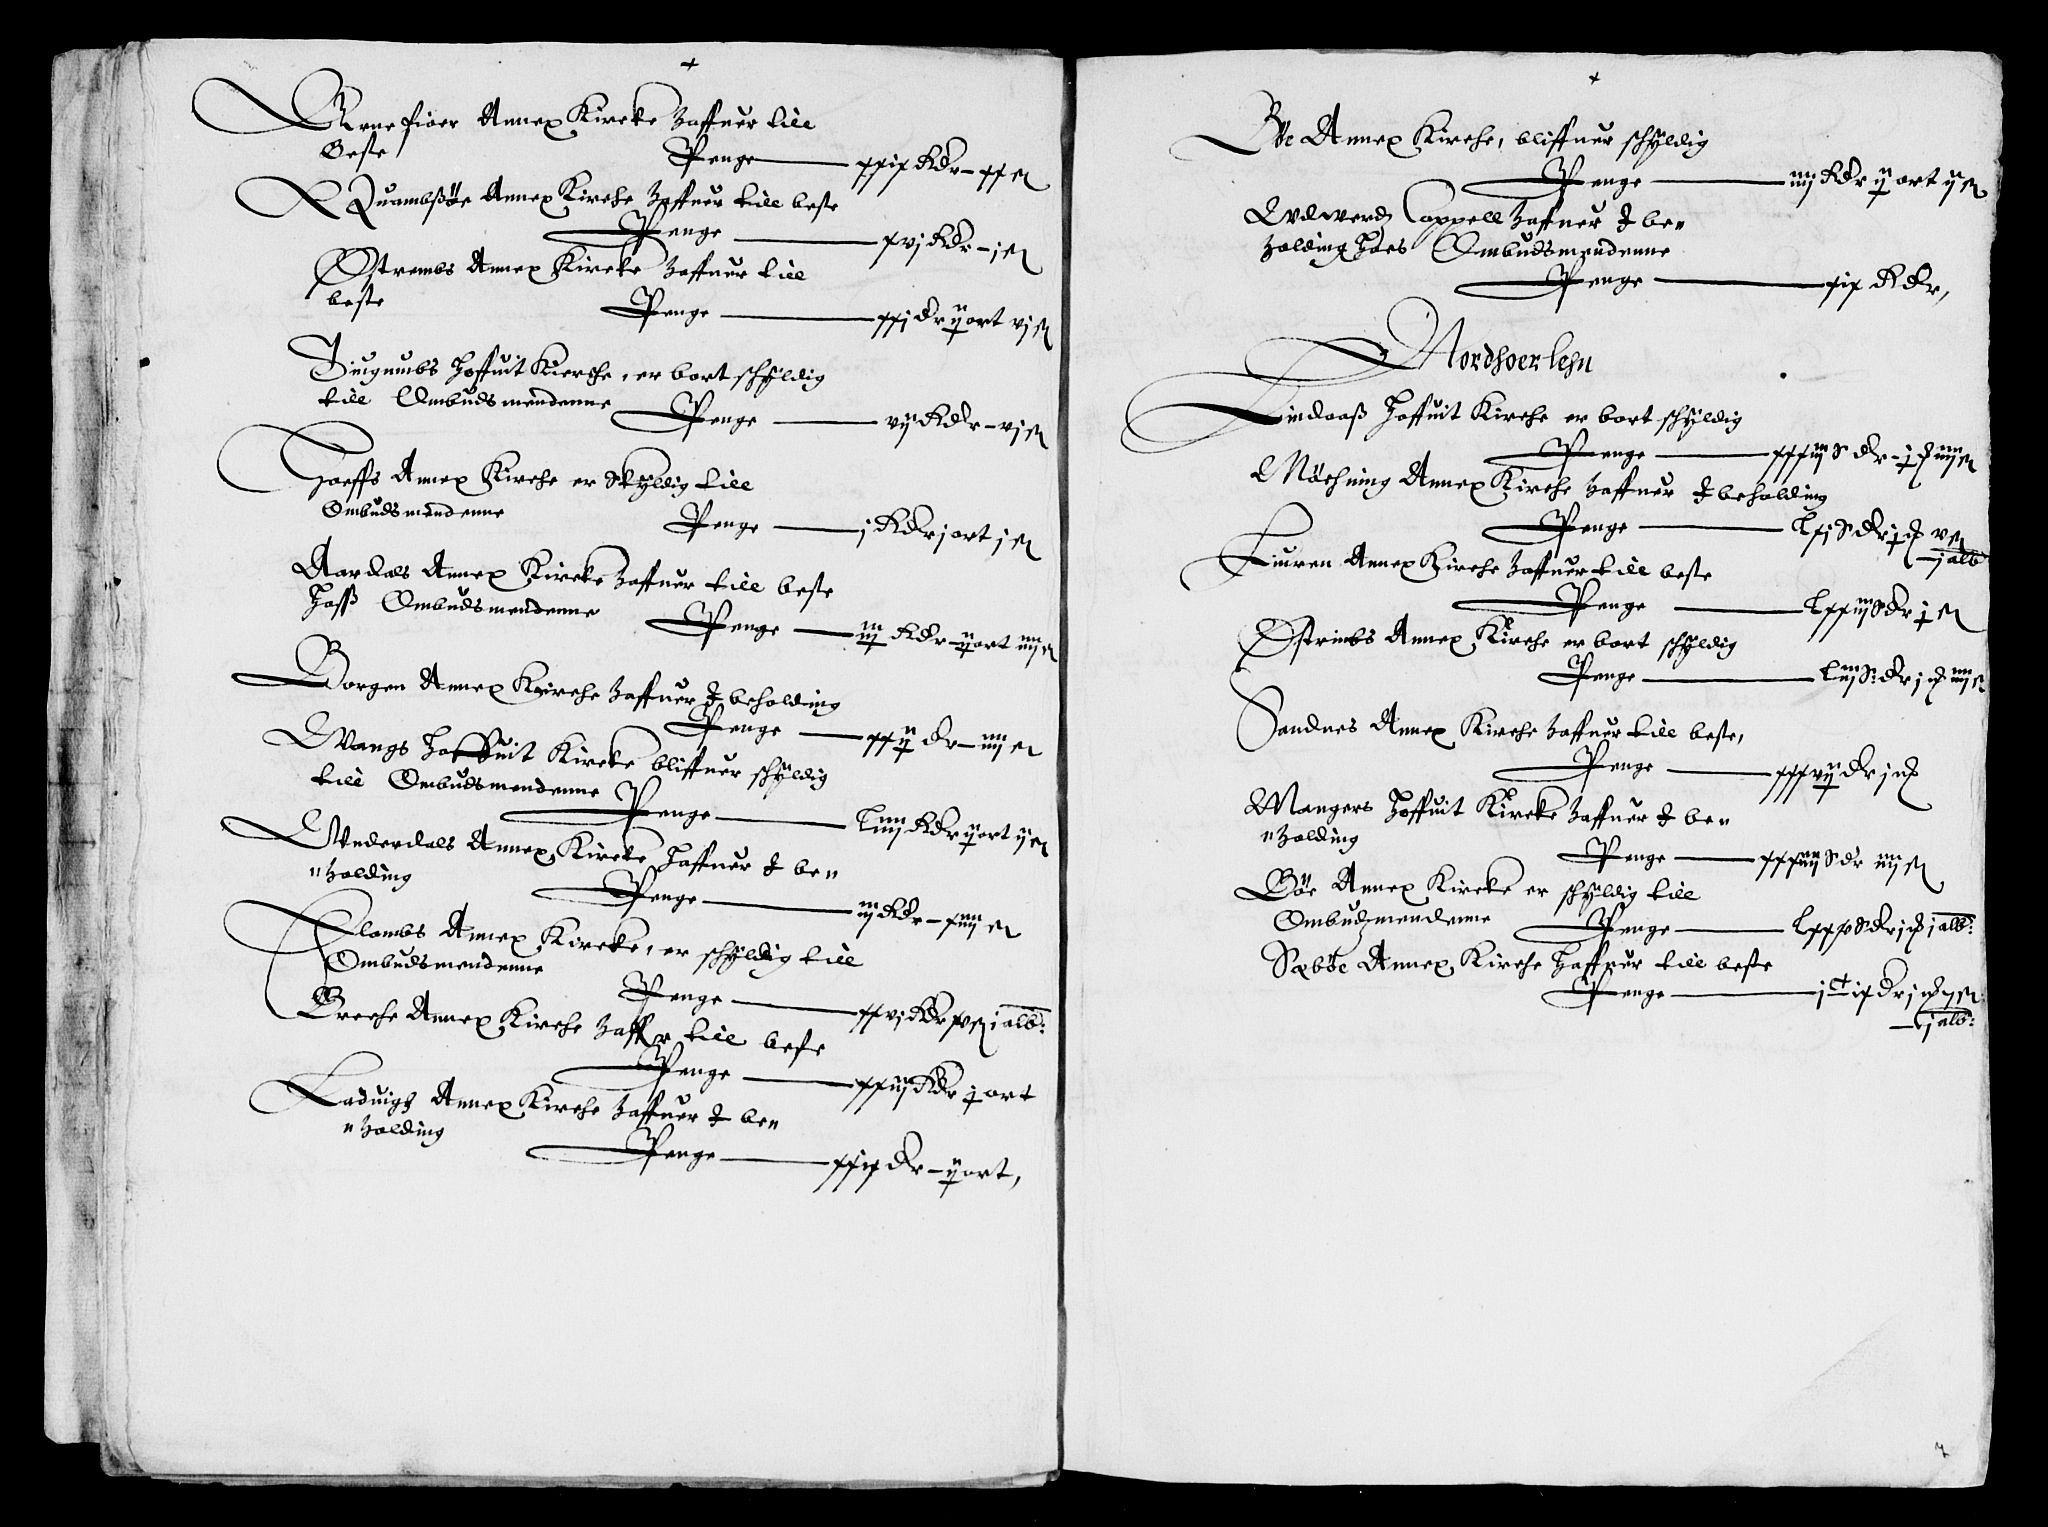 Arnefiær Annex Kircke haffuer till
beste
Penge xxix Rdr - xx ß
Quambsøe Annex Kirche haffuer till beste
Penge xvj Rdr - j ß
Østrembs Annex Kircke haffuer till
beste
Penge xxj dr ij ort vj ß
Tingumbs Hoffuit Kierche, er bort schyldig
till Ombudsmendenne
Penge vij Rdr - vj ß
Hoeffs Annex Kirche er Skyldig till
Ombudsmendenne
Penge j Rdr j ort j ß
Aardals Annex Kircke haffuer till beste
hoss Ombudsmendenne
Penge iij Rdr - ij ort iiij ß
Borgen Annex Kirche haffuer I beholding
Penge xxij dr - iiij ß
Wangs Hoffuit Kircke bliffuer schyldig
till Ombudsmendenne
Penge Liiij Rdr ij ort ij ß
Wnderdals Annex Kircke haffuer I be¬
holding
Penge iij Rdr - xiiij ß
Flombs Annex Kircke, er schyldig till
Ombudsmendenne
Penge xxvj Rdr xv ß j alb:
Breche Annex Kirche haffr till beste
Penge xxiij Rdr j ort
Laduigs Annex Kirche haffuer I be¬
holding
Penge xxix dr - ij ort,
Bøe Annex Kirche, bliffuer schyldig
Penge iiij Rdr ij ort ij ß
Wdwerds Cappell haffuer I be¬
holding hoes Ombudsmendenne
Penge xix Rdr,
Nordhoerlehn
Lindaaß Hoffuit Kirche er bort schyldig
Penge xxxiij S dr - j ß iiij ß
Møehning Annex Kirche haffuer I beholding
Penge Lxj S dr j ß v ß
j alb
Fiuren Annex Kirche haffuer till beste
Penge Lxxiij S dr j ß
Østrimbs Annex Kirche er bort schyldig
Penge Liij S: dr j ß iiij ß
Sandnes Annex Kirche haffuer till beste,
Penge xxxvij dr j ß
Mangers Hoffuit Kircke haffuer I be¬
holding
Penge xxxiiij S dr iiij ß
Bøe Annex Kircke er schyldig till
Ombudzmendenne
Penge Lxxx S dr j ß j alb:
Sæbøe Annex Kirche haffuer till beste
Penge j C ix dr j ß ij ß
j alb: